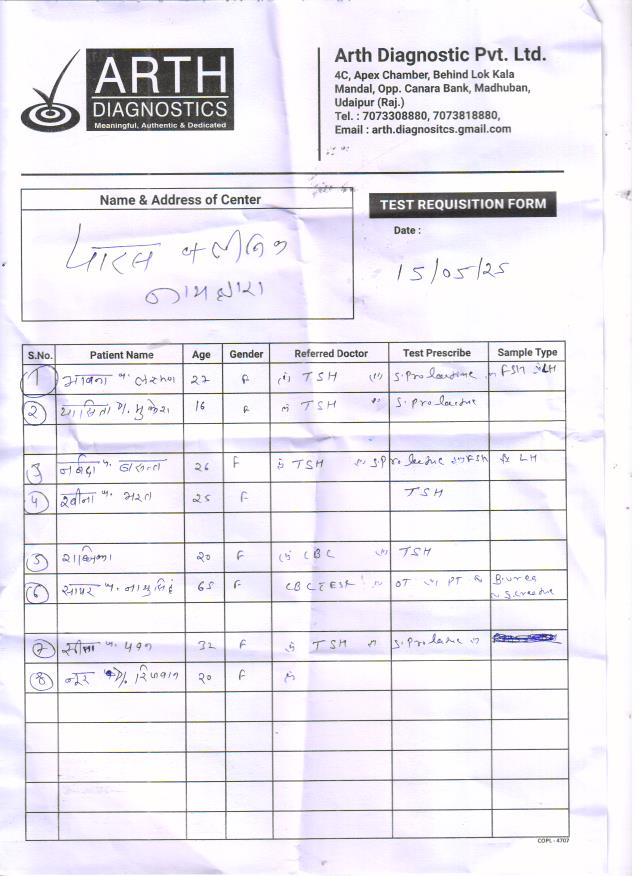 ARTH
DIAGNOSTICS
Meaningful, Authentic & Dedicated
Arth Diagnostic Pvt. Ltd.
4C, Apex Chamber, Behind Lok Kala
Mandal, Opp. Canara Bank, Madhuban,
Udaipur (Raj.)
Tel. : 7073308880, 7073818880,
Email : arth.diagnositcs.gmail.com
Name & Address of Center
TEST REQUISITION FORM
Date :
पारस क्लीनिक
15/05/25
S.No. Patient Name Age Gender Referred Doctor Test Prescribe Sample Type
1 भावना 27 F TSH S. Prolactine FSH LH
2 मुकेश 16 F TSH S. Prolactine
3 बसन्त 26 F TSH S. Prolactine FSH LH
4 भरत 25 F TSH
5 20 F CBC TSH
6 65 F CBC ESR OT PT B. urea
S. Creatine
7 सीमा 32 F TSH S. Prolactine
8 नूर 20 F
COPL - 4707